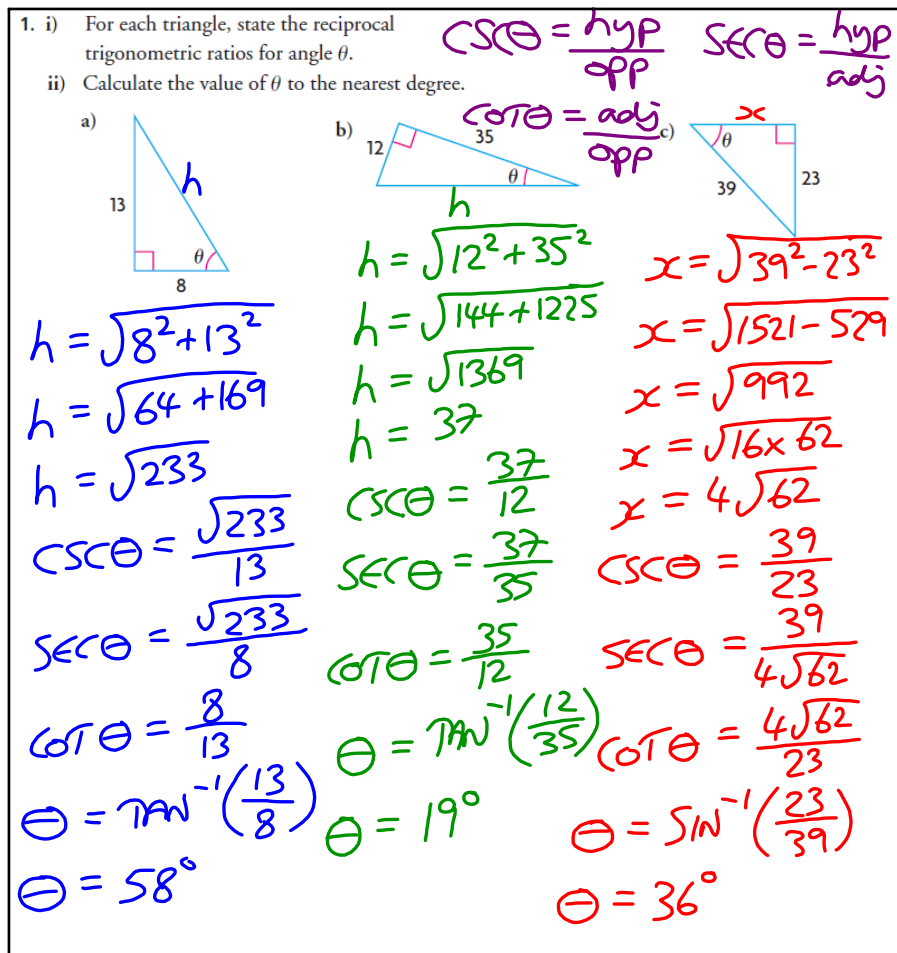 1. i) For each triangle, state the reciprocal
trigonometric ratios for angle θ.
ii) Calculate the value of θ to the nearest degree.
CSCθ = hyp/opp
SECθ = hyp/adj
COTθ = adj/opp
a)
13
h
θ
8
h = √(8² + 13²)
h = √(64 + 169)
h = √233
CSCθ = √233/13
SECθ = √233/8
COTθ = 8/13
θ = TAN⁻¹(13/8)
θ = 58°
b)
12
35
θ
h
h = √(12² + 35²)
h = √(144 + 1225)
h = √1369
h = 37
CSCθ = 37/12
SECθ = 37/35
COTθ = 35/12
θ = TAN⁻¹(12/35)
θ = 19°
c)
x
θ
39
23
x = √(39² - 23²)
x = √(1521 - 529)
x = √992
x = √(16 x 62)
x = 4√62
CSCθ = 39/23
SECθ = 39/4√62
COTθ = 4√62/23
θ = SIN⁻¹(23/39)
θ = 36°